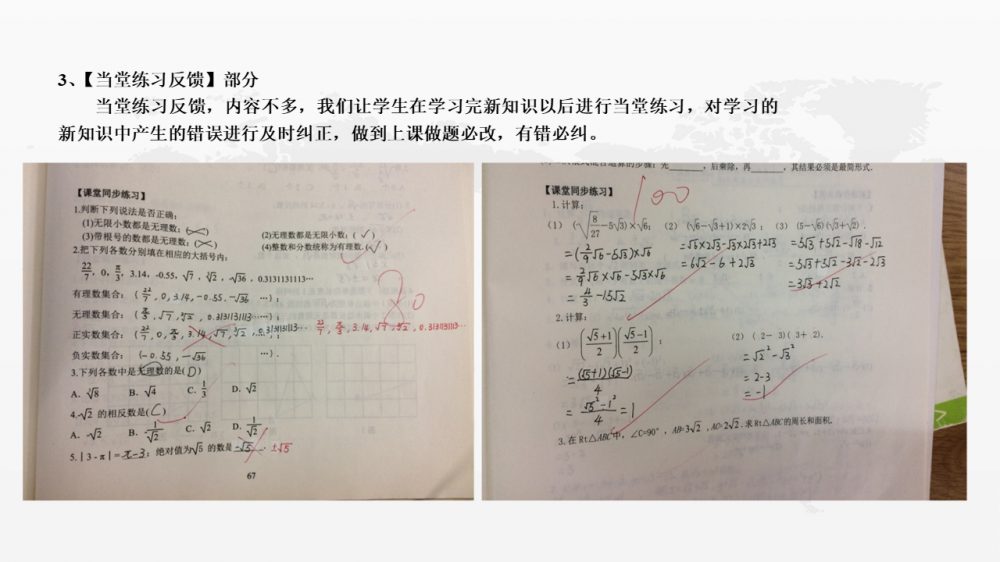 3、【当堂练习反馈】部分
当堂练习反馈，内容不多，我们让学生在学习完新知识以后进行当堂练习，对学习的
新知识中产生的错误进行及时纠正，做到上课做题必改，有错必纠。
【课堂同步练习】
1.判断下列说法是否正确：
(1)无限小数都是无理数；(×) (2)无理数都是无限小数；(√)
(3)带根号的数都是无理数；(×) (4)整数和分数统称为有理数.(√)
2.把下列各数分别填在相应的大括号内：
22/7，0，π/3，3.14，-0.55，√7，∛2，-√36，0.3131131113…
80
有理数集合：{22/7，0，3.14，-0.55，-√36 …}；
无理数集合：{π/3，√7，∛2，0.3131131113……}；
正实数集合：{22/7，0，π/3，3.14，√7，∛2，0.3131131113…}； 22/7，π/3，3.14，√7，∛2，0.3131131113…
负实数集合：{-0.55，-√36 …}．
3.下列各数中是无理数的是(D)
A．∛8 B．√4 C．1/3 D．√2
4.-√2 的相反数是(C)
A．-√2 B．1/√2 C．√2 D．1/√2
5.|3-π|=π-3；绝对值为√5 的数是-√5．±√5
67
后乘除，再______，其结果必须是最简形式.
【课堂同步练习】 100
1.计算：
(1) (√(8/27)-5√3)×√6； (2) (√6-√3+1)×2√3； (3) (5-√6)(√3+√2)．
=(2/9√6-5√3)×√6 =√6×2√3-√3×2√3+2√3 =5√3+5√2-√18-√12
=2/9√6×√6-5√3×√6 =6√2-6+2√3 =5√3+5√2-3√2-2√3
=4/3-15√2 =3√3+2√2
2.计算：
(1) ((√5+1)/2)((√5-1)/2)； (2) (√2-√3)(√3+√2)．
=(√5+1)(√5-1)/4 =√2²-√3²
=2-3
=(√5²-1²)/4=1 =-1
3.在 Rt△ABC 中，∠C=90°，AB=3√2，AC=2√2．求 Rt△ABC的周长和面积.